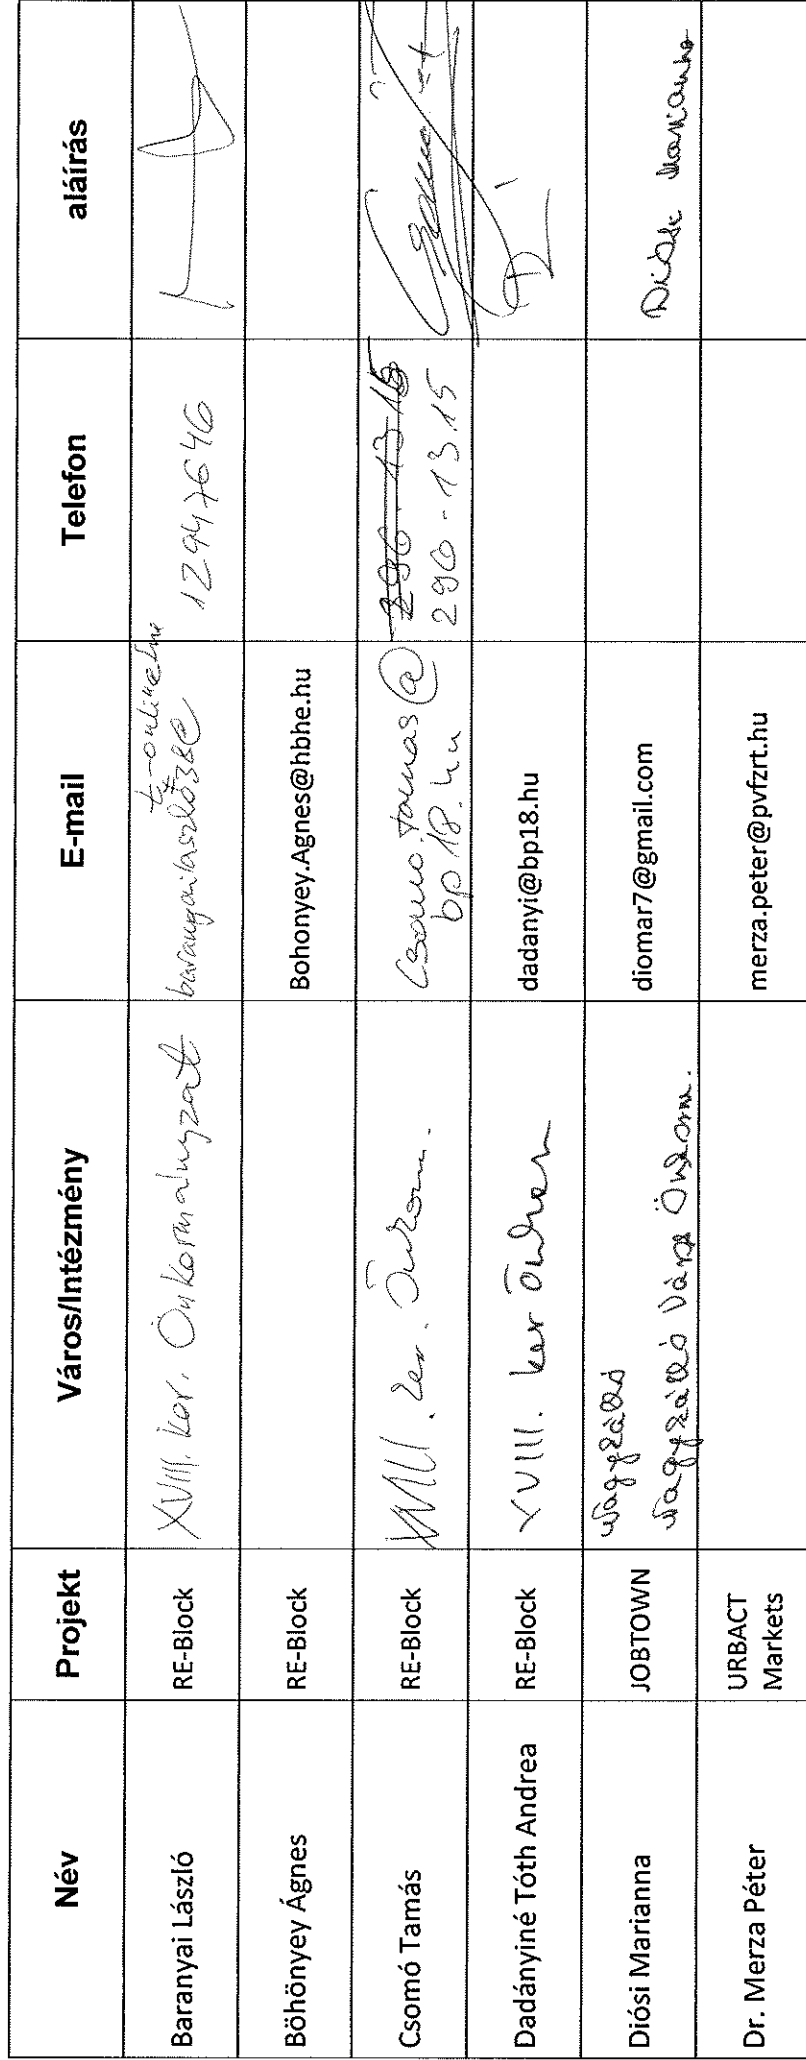 Név Projekt Város/Intézmény E-mail Telefon aláírás
Baranyai László RE-Block XVIII. ker. Önkormányzat baranyailaszlo38@ 12947646
Böhönyey Ágnes RE-Block Bohonyey.Agnes@hbhe.hu
Csomó Tamás RE-Block XVIII. ker. Önkorm. csomo.tamas@ 296-13-15
bp18.hu 290-13.15
Dadányiné Tóth Andrea RE-Block XVIII. ker Önkorm dadanyi@bp18.hu
Diósi Marianna JOBTOWN Nagykálló diomar7@gmail.com Diósi Marianna
Nagykálló Város Önkorm.
Dr. Merza Péter URBACT merza.peter@pvfzrt.hu
Markets